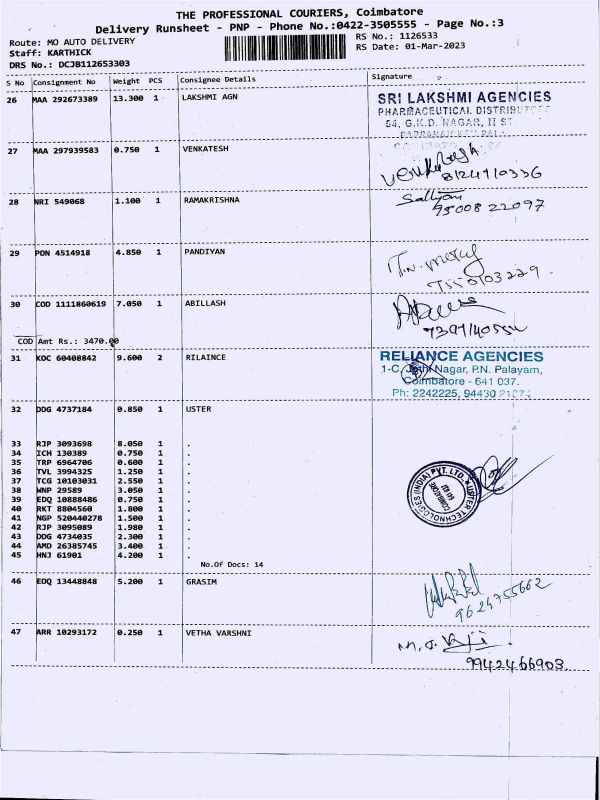 THE PROFESSIONAL COURIERS, Coimbatore
Delivery Runsheet - PNP - Phone No.:0422-3505555 - Page No.:3
Route: MO AUTO DELIVERY
Staff: KARTHICK
DRS No.: DCJB112653303
RS No.: 1126533
RS Date: 01-Mar-2023
S No Consignment No Weight PCS Consignee Details Signature
26 MAA 292673389 13.300 1 LAKSHMI AGN
SRI LAKSHMI AGENCIES
PHARMACEUTICAL
54, G.K.D. NAGAR, II ST
27 MAA 297939583 0.750 1 VENKATESH
Venkatesh
8124710336
28 NRI 549068 1.100 1 RAMAKRISHNA
95008 22097
29 PON 4514918 4.850 1 PANDIYAN
30 COD 1111860619 7.050 1 ABILLASH
COD Amt Rs.: 3470.00
31 KOC 60408842 9.600 2 RILAINCE
RELIANCE AGENCIES
1-C, Nagar, P.N. Palayam,
Coimbatore - 641 037.
Ph: 2242225, 94430
32 DDG 4737184 0.850 1 USTER
33 RJP 3093698 8.050 1 .
34 ICH 130389 0.750 1 .
35 TRP 6964706 0.600 1 .
36 TVL 3994325 1.250 1 .
37 TCG 10103031 2.550 1 .
38 WNP 29589 3.050 1 .
39 EDQ 10888486 0.750 1 .
40 RKT 8804560 1.800 1 .
41 NGP 520440278 1.500 1 .
42 RJP 3095089 1.980 1 .
43 DDG 4734035 2.300 1 .
44 AMD 26385745 3.400 1 .
45 HNJ 61901 4.200 1 .
USTER TECHNOLOGIES (INDIA) PVT. LTD.
COIMBATORE
641 037
No.Of Docs: 14
46 EDQ 13448848 5.200 1 GRASIM
9624755662
47 ARR 10293172 0.250 1 VETHA VARSHNI
9942466903